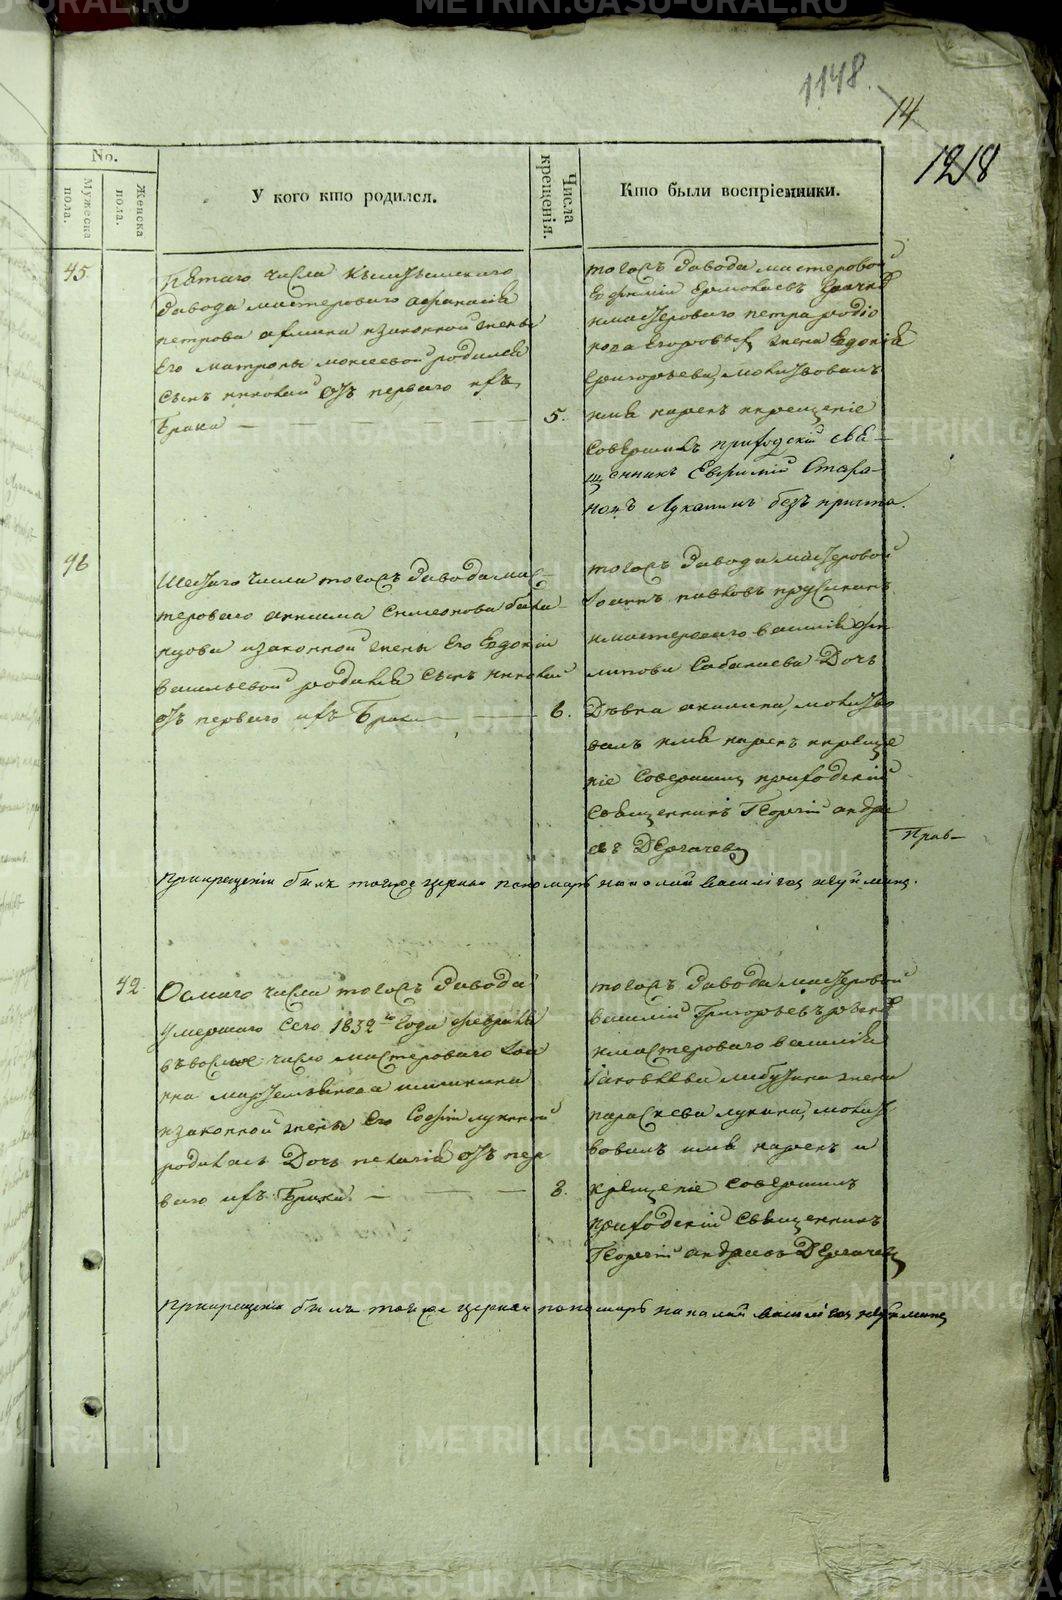 1148.
14
1218
No.
Мужеска пола.
Женска пола.
У кого кто родился.
Числа крещенія.
Кто были воспріемники.
45
Пятаго числа
завода мастероваго Афанасія
Петрова и законной жены
его Матроны Моисеевой родился
сынъ Николай отъ перваго ихъ
брака
5.
тогожъ завода мастеровой
Евфимій
и мастероваго Петра
жена Евдокія
Григорьева, молитвовалъ
имя нарекъ и крещеніе
совершилъ приходскій свя-
щенникъ Евфимій Стефа-
новъ Лукаминъ безъ причта.
46
Шестаго числа тогожъ завода мас-
тероваго Акинѳа Симеонова
и законной жены его Евдокіи
Васильевой родился сынъ Николай
отъ перваго ихъ брака
6.
тогожъ завода мастеровой
Іоаннъ Павловъ
и мастероваго Василія Фи-
липова Сабанаева дочь
девка Акилина, молитво
валъ имя нарекъ и креще
ніе совершилъ приходскій
священникъ Георгій Андре
евъ Дергачевъ
Прав-
При крещеніи былъ тойже церкви пономарь Николай Васильевъ
42.
Осмаго числа тогожъ завода
умершаго сего 1832го года февраля
въ восмое число мастероваго Іоа
нна Шишкина
и законной жены его Софіи Лукиной
родилась дочь Пелагія отъ пер
ваго ихъ брака
8.
тогожъ завода мастеровой
Василій Григорьевъ
и мастероваго Василія
Іаковлева жена
Параскева Лукина, молит
вовалъ имя нарекъ и
крещеніе совершилъ
приходскій священникъ
Георгій Андреевъ Дергачевъ
При крещеніи былъ тойже церкви пономарь Николай Васильевъ
METRIKI.GASO-URAL.RU